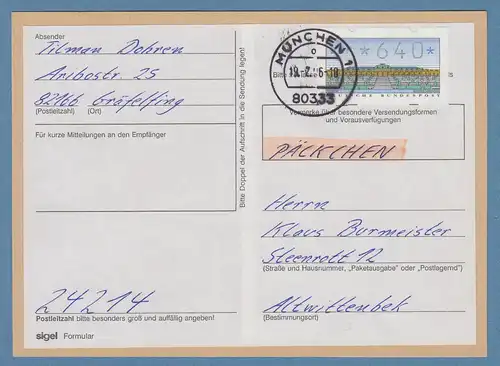 Absender
Tilman Dohren
Aribostr. 25
82166 Gräfelfing
(Postleitzahl) (Ort)
Für kurze Mitteilungen an den Empfänger
24214
Postleitzahl bitte besonders groß und auffällig angeben!
sigel Formular
Bitte Doppel der Aufschrift in die Sendung legen!
MÜNCHEN 1
80333
*640*
DEUTSCHE BUNDESPOST
Vermerke über besondere Versendungsformen
und Vorausverfügungen
PÄCKCHEN
Herrn
Klaus Burmeister
Steenrott 12
(Straße und Hausnummer, „Paketausgabe" oder „Postlagernd")
Altwittenbek
(Bestimmungsort)